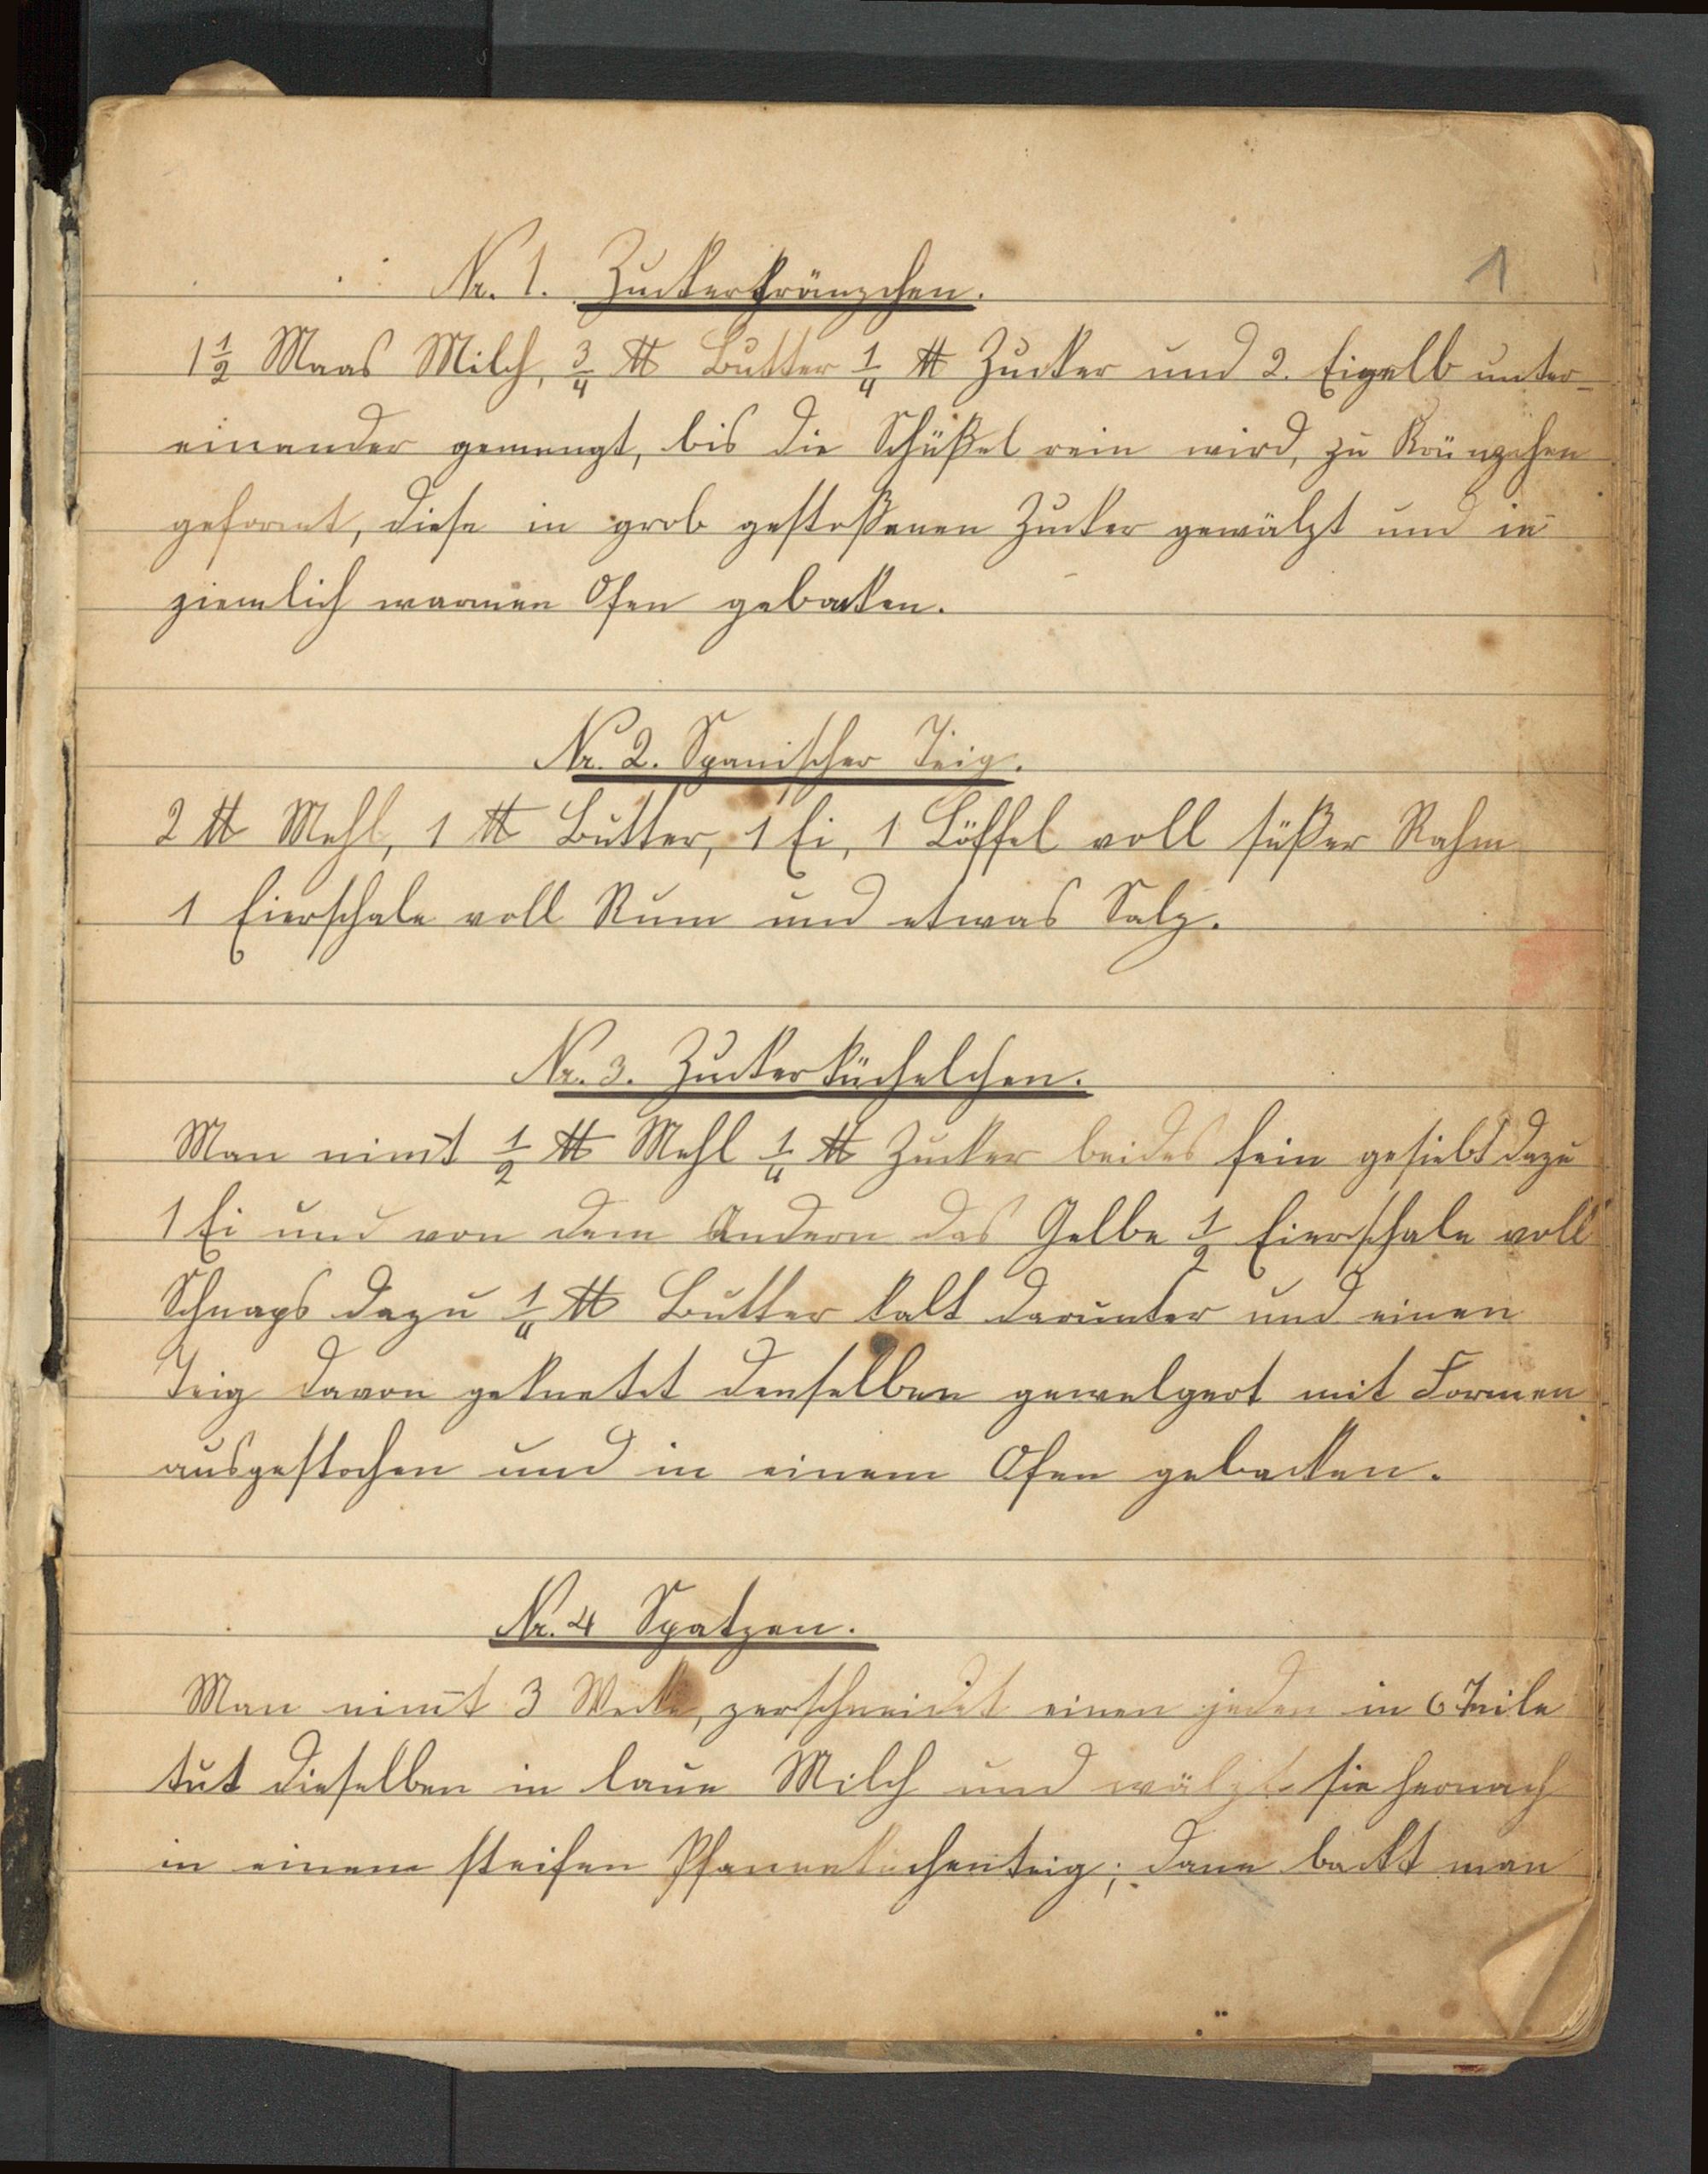 1
Nr. 1. Zuckerkränzchen.
1 1/2 Maas Milch, 3/4 ℔ Butter 1/4 ℔ Zucker und 2. Eigelb unter-
einander gemengt, bis die Schüßel rein wird, zu Kränzchen
geformt, diese in grob gestoßenen Zucker gewälzt und in
ziemlich warmen Ofen gebacken.
Nr. 2. Spanischer Teig.
2 ℔ Mehl, 1 ℔ Butter, 1 Ei, 1 Löffel voll süßer Rahm
1 Eierschale voll Rum und etwas Salz.
Nr. 3. Zuckerküchelchen.
Man nim̅t 1/2 ℔ Mehl 1/4 ℔ Zucker beides fein gesiebt dazu
1 Ei und von dem Andern das Gelbe 1/2 Eierschale voll
Schnaps dazu 1/4 ℔ Butter kalt darunter und einen
Teig davon geknetet denselben gewelgert mit Formen
ausgestochen und in einem Ofen gebacken.
Nr. 4 Spatzen.
Man nim̅t 3 Wecke, zerschneidet einen jeden in 6 Teile
tut dieselben in laue Milch und wälzt sie hernach
in einem steifen Pfannekuchenteig; dann backt man